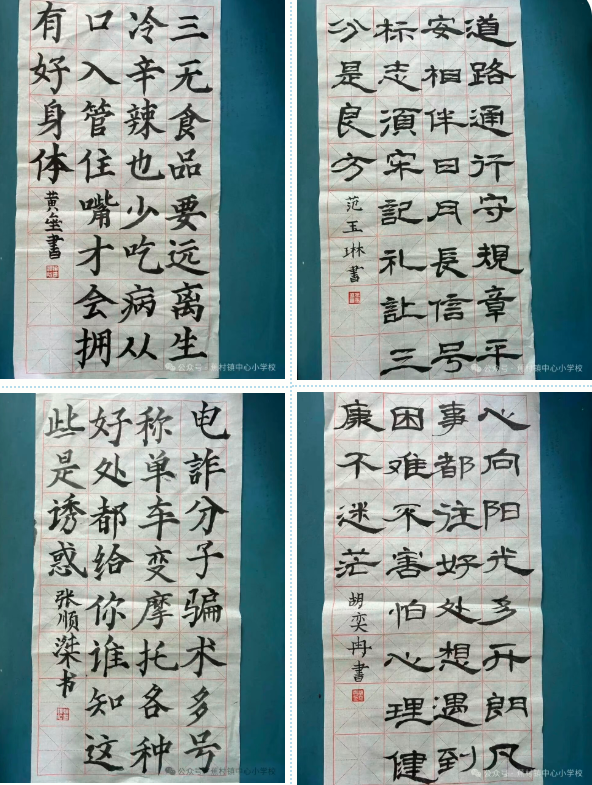 三无食品要远离生
冷辛辣也少吃病从
口入管住嘴才会拥
有好身体
黄 書
道路通行守規章平
安相伴日月長信号
标志須牢記礼让三
分是良方
范玉琳書
电詐分子骗术多号
称单车变摩托各种
好处都给你谁知这
些是诱惑
张顺 书
心向阳光多开朗凡
事都往好处想遇到
困难不害怕心理健
康不迷茫
胡奕冉書
公众号 村镇中心小学校
公众号 村镇中心小学校
公众号 村镇中心小学校
公众号 村镇中心小学校